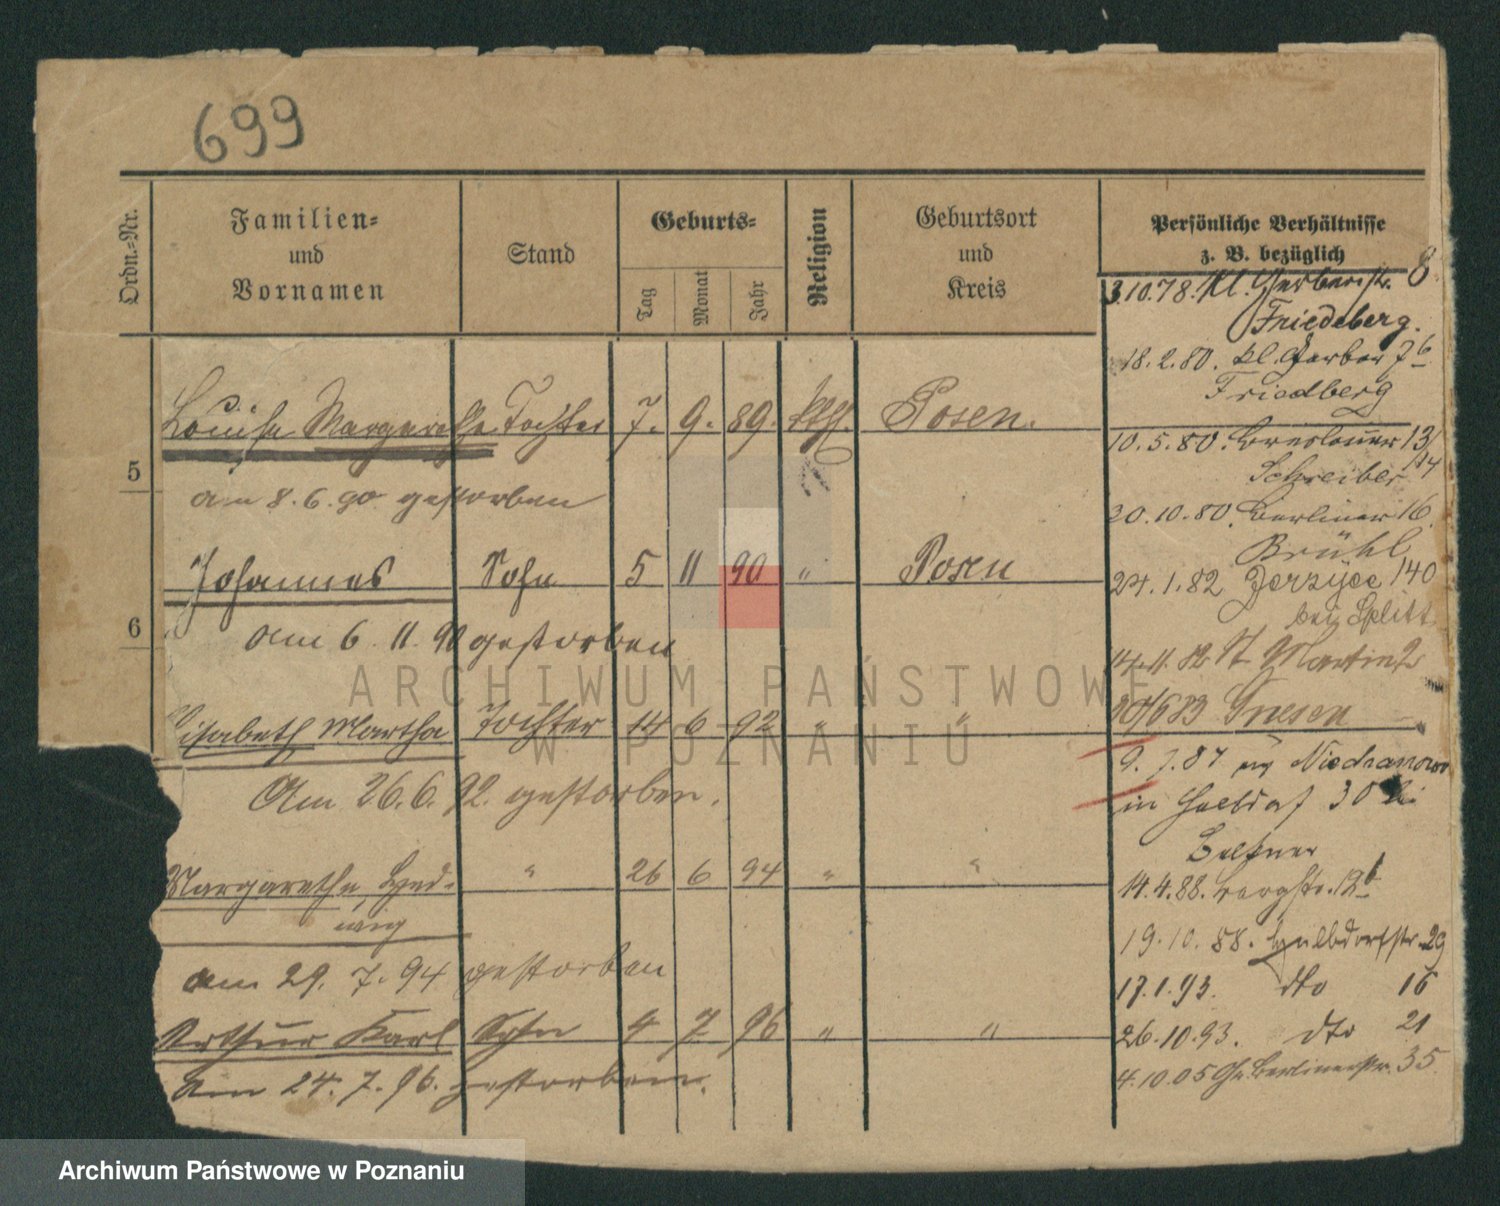 699
Ordn.-Nr.
Familien-
und
Vornamen
Stand
Geburts-
Tag
Monat
Jahr
Religion
Geburtsort
und
Kreis
Persönliche Verhältnisse
z. B. bezüglich
Louise Margarethe Tochter 7. 9. 89. kath. Posen.
5
am 8. 6. 90 gestorben
Johannes Sohn 5 11 90 " Posen
6
am 6. 11. 90 gestorben
Elisabeth Martha Tochter 14 6 92 " "
Am 26. 6. 92. gestorben.
Margarethe, Hed-
wig " 26 6 94 " "
am 29. 7. 94 gestorben
Arthur Karl Sohn 4 7 96 " "
Am 24. 7. 96. gestorben.
3.10.78. Kl. Gerberstr. 8
Friedeberg.
18. 2. 80. kl. Gerber 7b
Friedberg
10. 5. 80. Breslauer 13/
Schreiber 14
20. 10. 80. Berliner 16.
Brühl
24. 1. 82 Jerzyce 140
bei Splitt
14. 11. 82 St Martin 2
30/6 83 Gnesen
9. 7. 87 aus Niechanowo
in Halbdorf 30 bei
14. 4. 88. Bergstr. 12b
19. 10. 88. Halbdorfstr. 29
17. 1. 93. dto 16
26. 10. 93. dto 21
4. 10. 05 Gr. Berlinerstr. 35.
ARCHIWUM PAŃSTWOWE
W POZNANIU
Archiwum Państwowe w Poznaniu